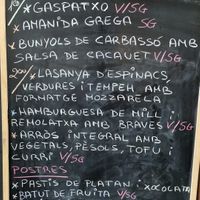 1er * GASPATXO V/SG
* AMANIDA GREGA SG
* BUNYOLS DE CARBASSÓ AMB
SALSA DE CACAUET V/SG
2on/ * LASANYA D'ESPINACS,
VERDURES I TEMPEH AMB
FORMATGE MOZZARELA
* HAMBURGUESA DE MILL I
REMOLATXA AMB BRAVES V/SG
* ARRÒS INTEGRAL AMB
VEGETALS, PÈSOLS, TOFU I
CURRI V/SG
POSTRES
* PASTÍS DE PLATAN I XOCOLATA
* BATUT DE FRUITA V/SG